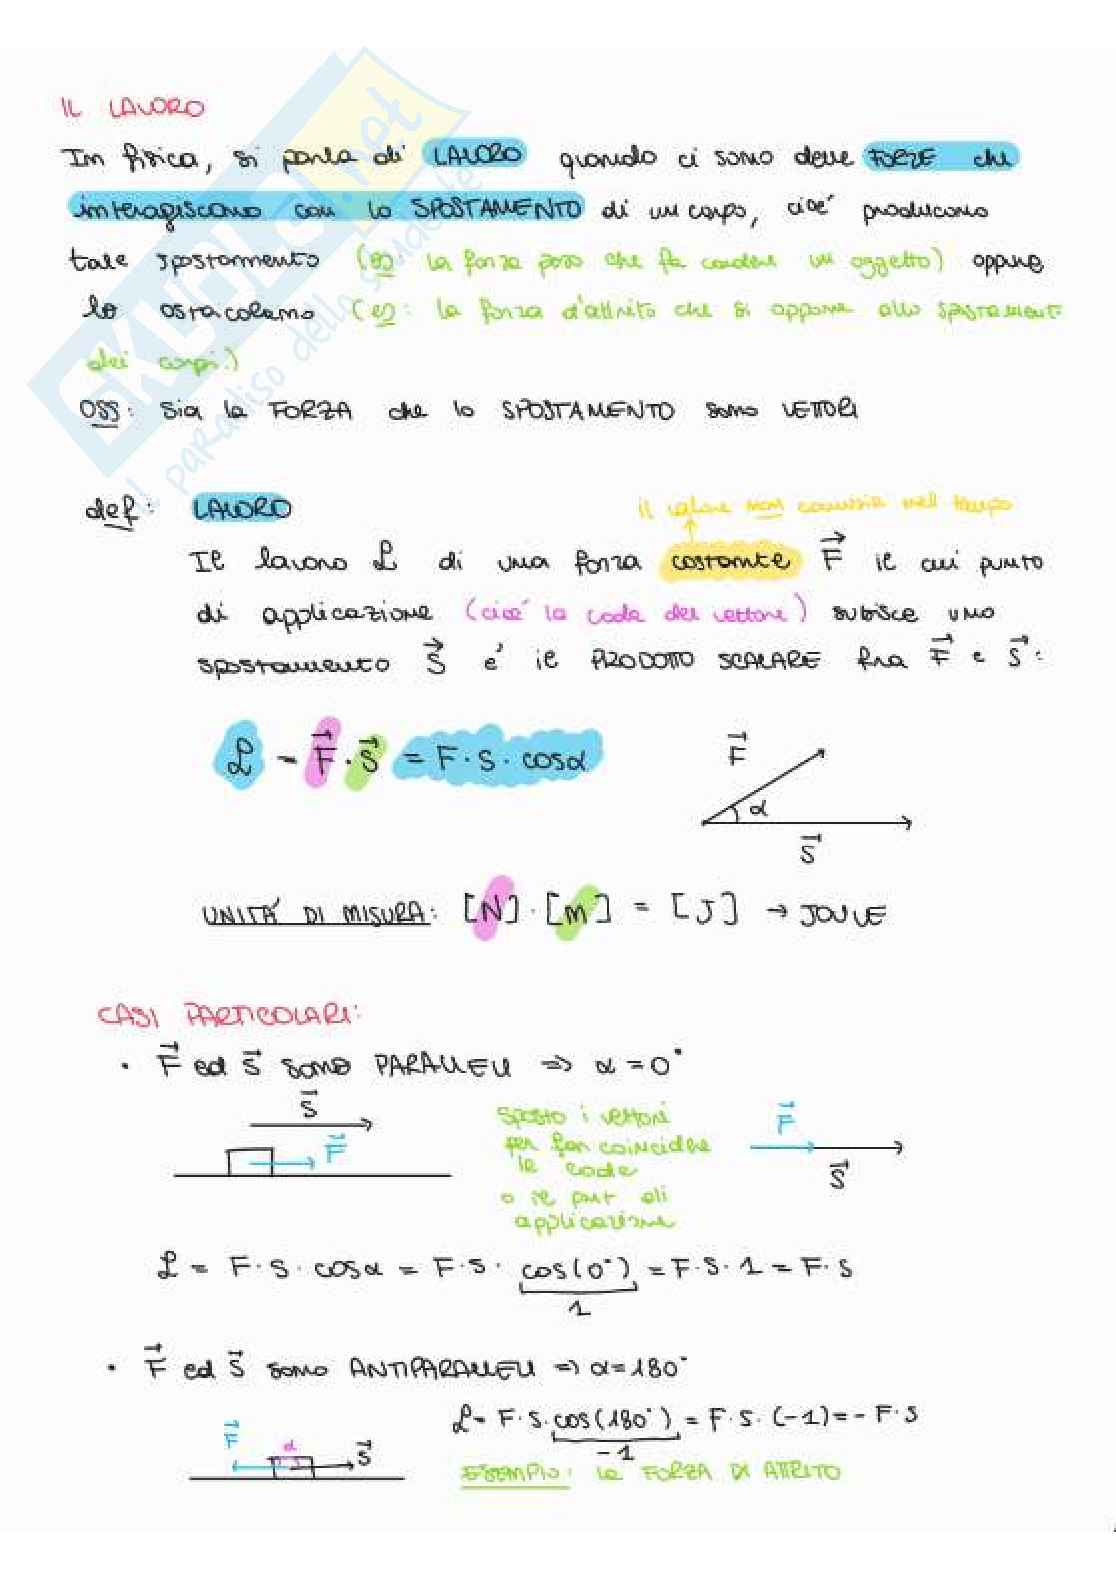 IL LAVORO
In fisica, si parla di LAVORO quando ci sono delle FORZE che
interagiscono con lo SPOSTAMENTO di un corpo, cioè producono
tale spostamento (es la forza peso che fa cadere un oggetto) oppure
lo ostacolano (es: la forza d'attrito che si oppone allo spostament
dei corpi.)
OSS: Sia la FORZA che lo SPOSTAMENTO sono VETTORI
def: LAVORO
il valore non cambia nel tempo
Il lavoro L di una forza costante F⃗ il cui punto
di applicazione (cioè la coda del vettore) subisce uno
spostamento S⃗ è il PRODOTTO SCALARE fra F⃗ e S⃗:
L = F⃗ · S⃗ = F · S · cosα
F⃗
α
S⃗
UNITÀ DI MISURA: [N] · [m] = [J] → JOULE
CASI PARTICOLARI:
• F⃗ ed S⃗ sono PARALLELI ⇒ α = 0°
S⃗
F⃗
sposto i vettori
per far coincidere
le code
o il punt di
applicazione
F⃗
S⃗
L = F · S · cosα = F · S · cos(0°) = F · S · 1 = F · S
1
• F⃗ ed S⃗ sono ANTIPARALLELI ⇒ α = 180°
F⃗
α
S⃗
L = F · S · cos(180°) = F · S · (-1) = - F · S
-1
ESEMPIO: la FORZA DI ATTRITO
SKUOLA.net
il paradiso dello studente